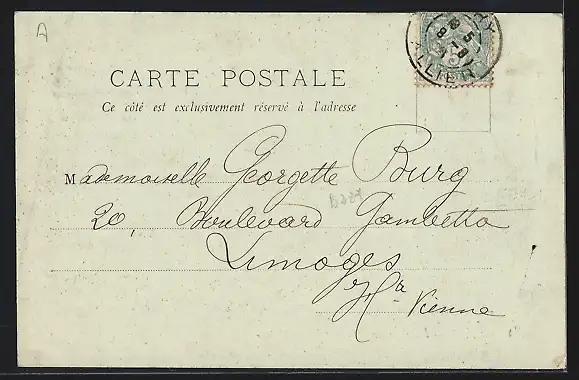 A
ALLIER
CARTE POSTALE
Ce côté est exclusivement réservé à l'adresse
Mademoiselle Georgette Burg
20, Boulevard Gambetta
Limoges
Hte Vienne